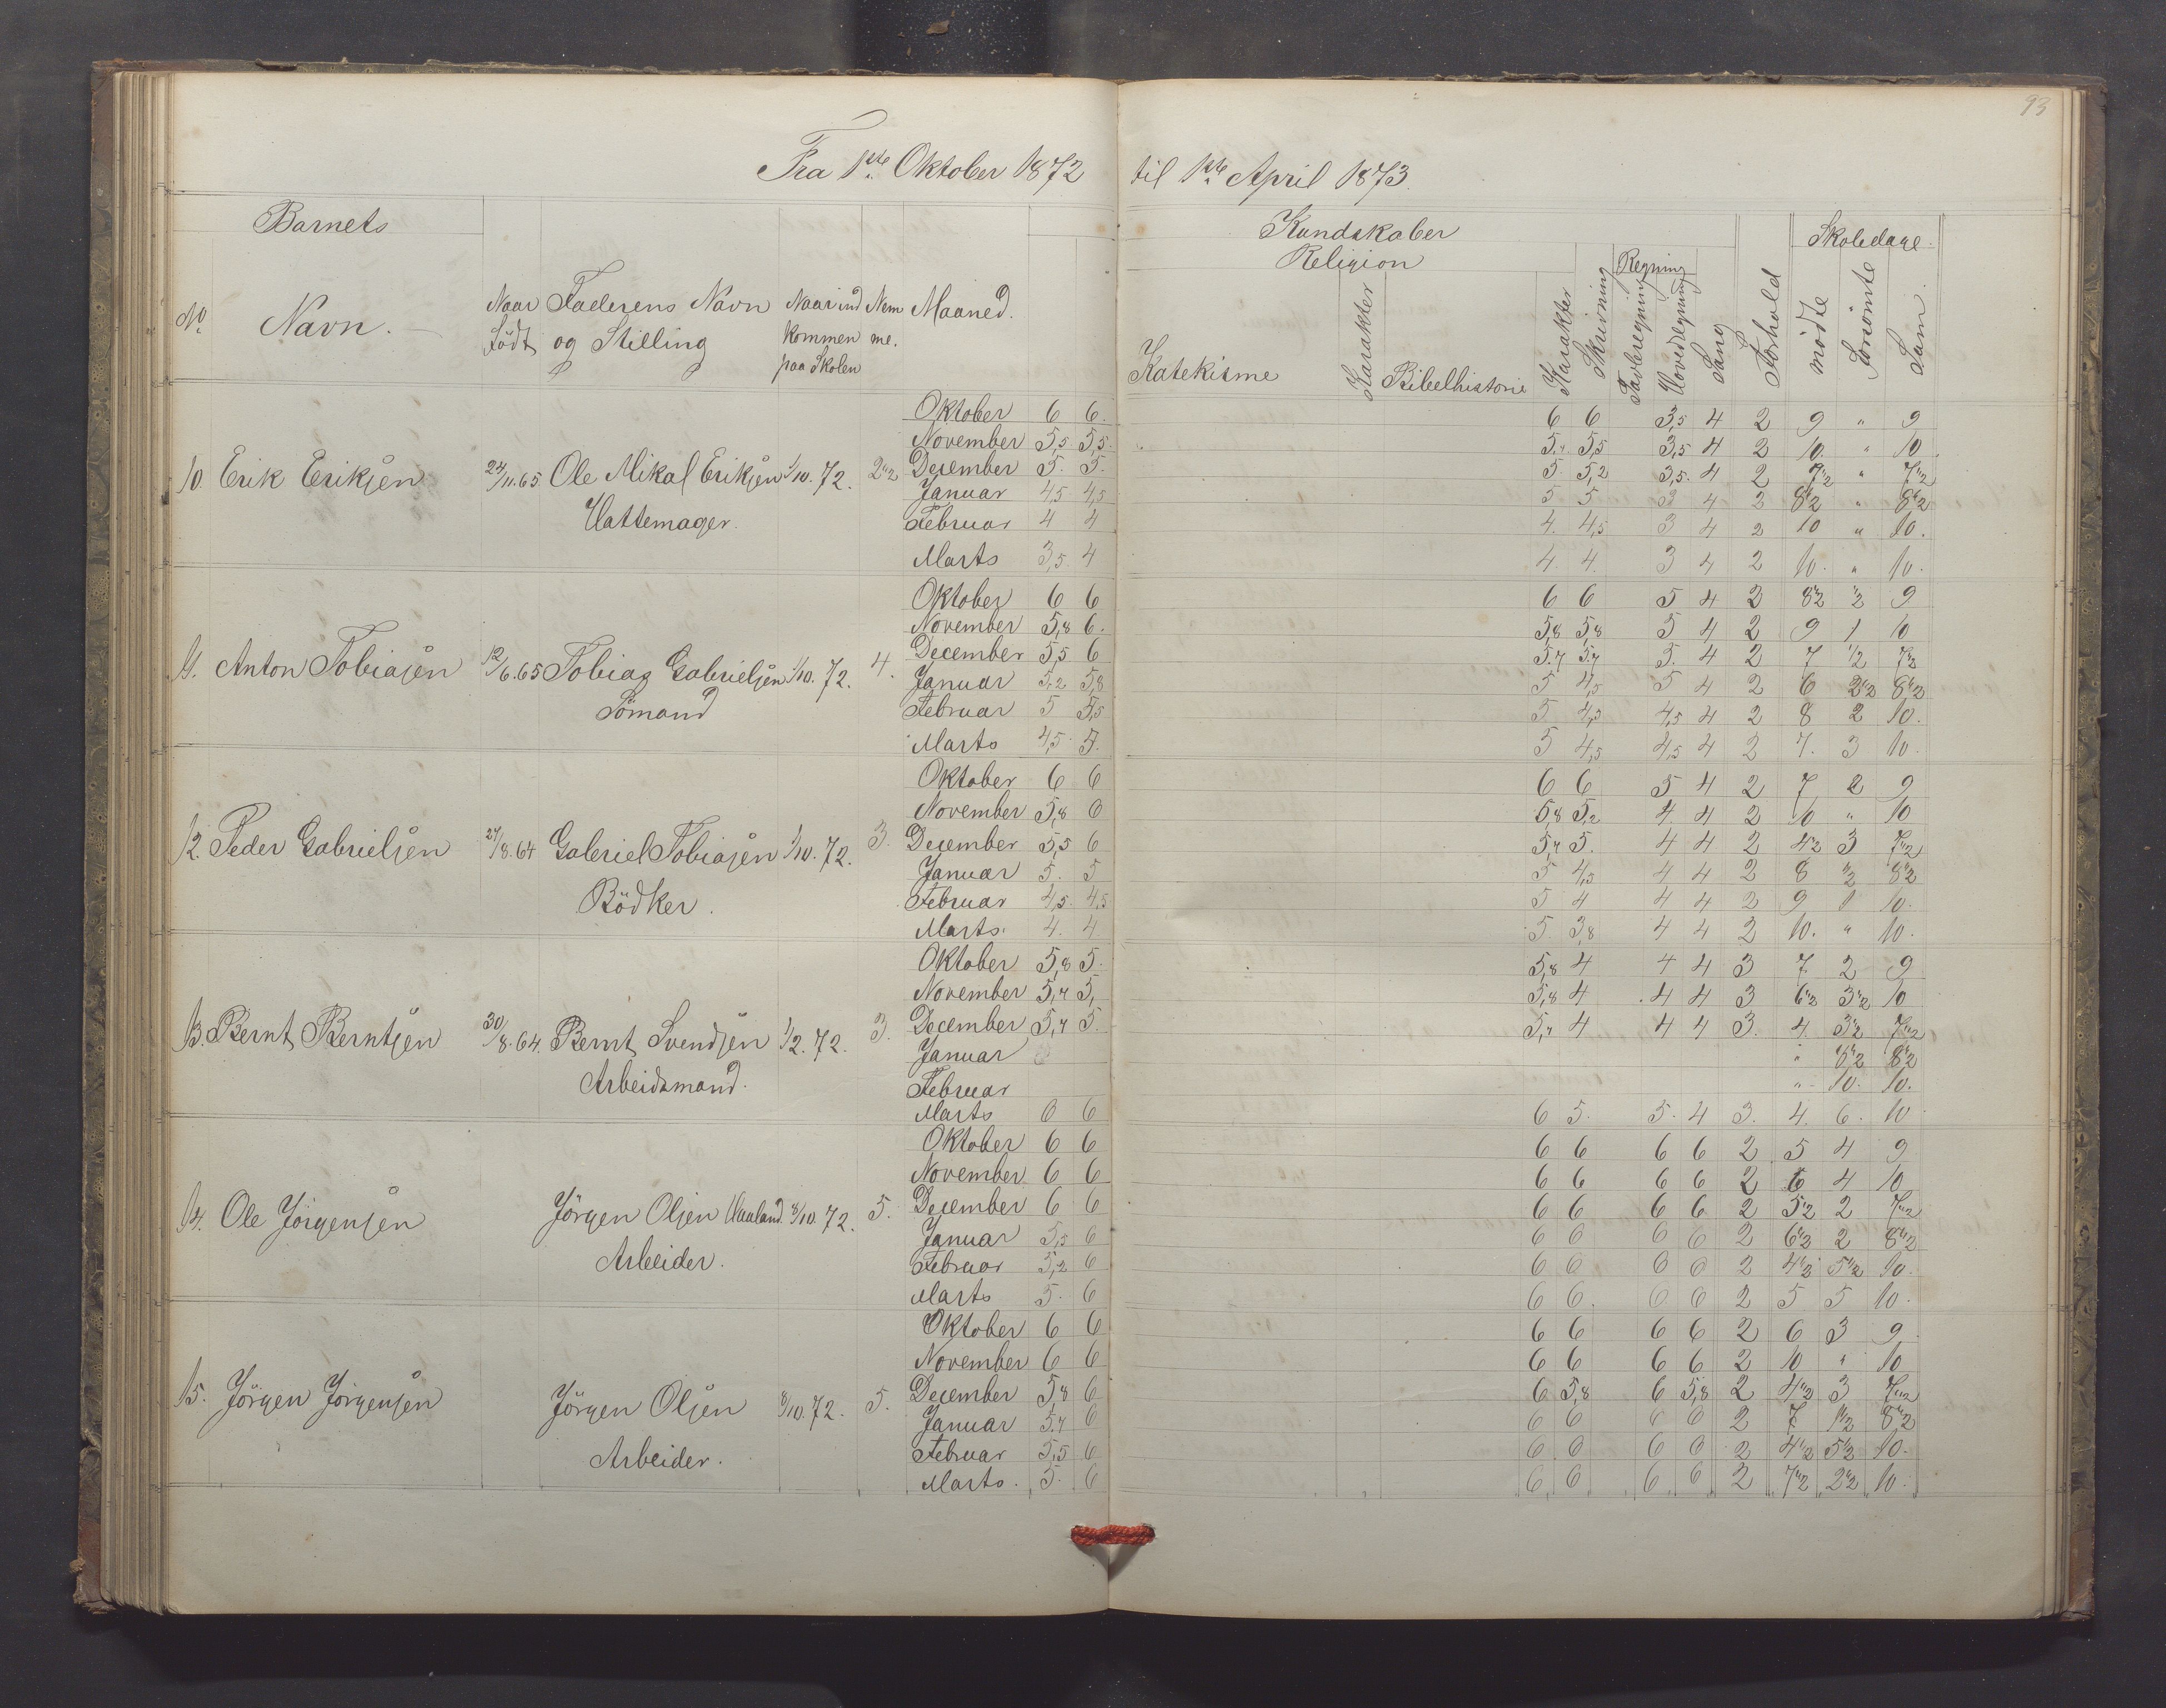 93
Fra 1ste Oktober 1872 til 1ste April 1873.
Barnets Kundskaber Skoledage.
Religion Regning
No. Navn. Naar Födt Faderens Navn og Stilling Naar ind kommen paa Skolen Nemme. Maaned. Katekisme Karakter Bibelhistorie Karakter Skrivning Tavleregning Hovedregning Sang Forhold mödte Forsömte Sum
Oktober 6 6. 6 6 3,5 4 2 9 " 9
November 5,5 5,5 5,7 5,5 3,5 4 2 10. " 10
10. Erik Eriksen 24/11.65 Ole Mikal Eriksen 1/10.72. 2 1/2 December 5. 5. 5 5,2 3,5. 4 2 7 1/2 " 7 1/2
Januar 4,5 4,5 5 5 3 4 2 8 1/2 " 8 1/2
Hattemager. Februar 4 4 4. 4,5 3 4 2 10 " 10.
Marts 3,5. 4 4. 4. 3 4 2 10. " 10.
Oktober 6 6 6 6 5 4 2 8 1/2 1/2 9
November 5,8 6. 5,8 5,8 5 4 2 9 1 10
11. Anton Tobiasen 12/6.65 Tobias Gabrielsen 1/10.72. 4. December 5,5 6 5.7 5,7 5. 4 2 7 1/2 7 1/2
Januar 5,2 5,8 5 4,5 5 4 2 6 2 1/2 8 1/2
Sömand Februar 5 5,5 5 4,5 4,5 4 2 8 2 10.
Marts 4,5. 5. 5 4,5 4,5 4 2 7. 3 10.
Oktober 6 6 6 6 5 4 2 7 2 9
November 5,8 6 5,8 5,2 4. 4 2 10 " 10
12. Peder Gabrielsen 27/8.64 Gabriel Tobiasen 1/10.72. 3. December 5,5 6 5,7 5. 4 4 2 4 1/2 3 7 1/2
Januar 5. 5 5 4,5 4 4 2 8 1/2 8 1/2
Bödker. Februar 4,5. 4,5 5 4 4 4 2 9 1 10.
Marts. 4. 4 5 3,8 4 4 2 10. " 10.
Oktober 5,8 5. 5,8 4 4 4 3 7 2 9
November 5,7 5, 5,8 4 4 4 3 6 1/2 3 1/2 10
13. Bernt Berntsen 30/8.64. Bernt Svendsen 1/2.72. 3. December 5,7 5. 5,7 4 4 4 3. 4. 3 1/2 7 1/2
Januar " 8 1/2 8 1/2
Arbeidsmand. Februar " 10. 10.
Marts 6 6 6 5. 5. 4 3. 4. 6. 10
Oktober 6 6 6 6 6 6 2 5 4 9
November 6 6 6 6 6 6 2 6 4 10
14. Ole Jörgensen Jörgen Olsen Haaland. 8/10.72. 5. December 6 6 6 6 6 6 2 5 1/2 2 7 1/2
Januar 5,5 6 6 6 6 6 2 6 1/2 2 8 1/2
Arbeider. Februar 5,2 6 6 6 6 6 2 4 1/2 5 1/2 10.
Marts 5. 6 6 6. 6. 6 2 5 5 10.
Oktober 6 6 6 6 6 6 2 6 3 9
November 6 6 6 6 6 6 2 10 " 10
15. Jörgen Jörgensen Jörgen Olsen 8/10.72. 5. December 5,8 6 6 5,8 6 5,8 2 4 1/2 3 7 1/2
Januar 5,7 6 6 6 6 6 2 7 1 1/2 8 1/2
Arbeider. Februar 5,5 6 6 6 6 6 2 4 1/2 5 1/2 10.
Marts. 5. 6 6 6 6 6 2 7 1/2 2 1/2 10.